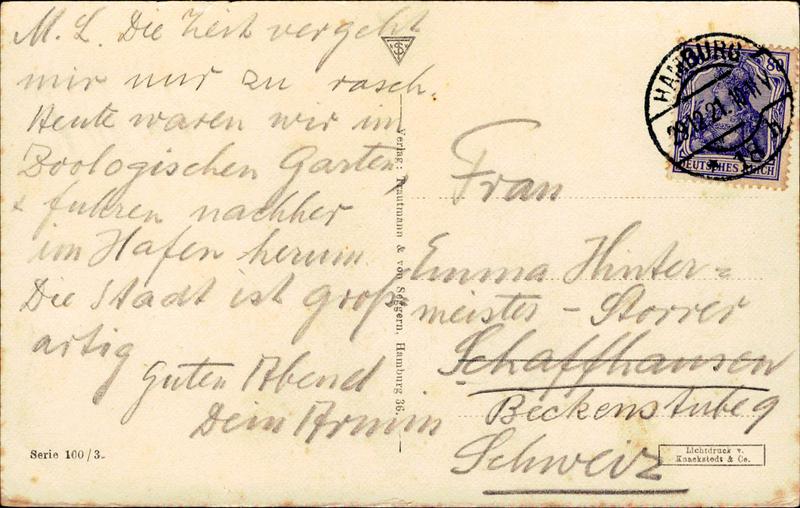 M. L. Die Zeit vergeht
mir nur zu rasch.
Heute waren wir im
Zoologischen Garten,
+ fuhren nachher
im Hafen herum
Die Stadt ist groß-
artig
Guten Abend
Dein Armin
Serie 100/3.
Verlag: Trautmann & von Seggern, Hamburg 36.
HAMBURG
29.12.21. 10-11 V
80
DEUTSCHES REICH
Frau
Emma Hinter=
meister - Storrer
Schaffhausen
Beckenstube 9
Schweiz
Lichtdruck v.
Knackstedt & Co.